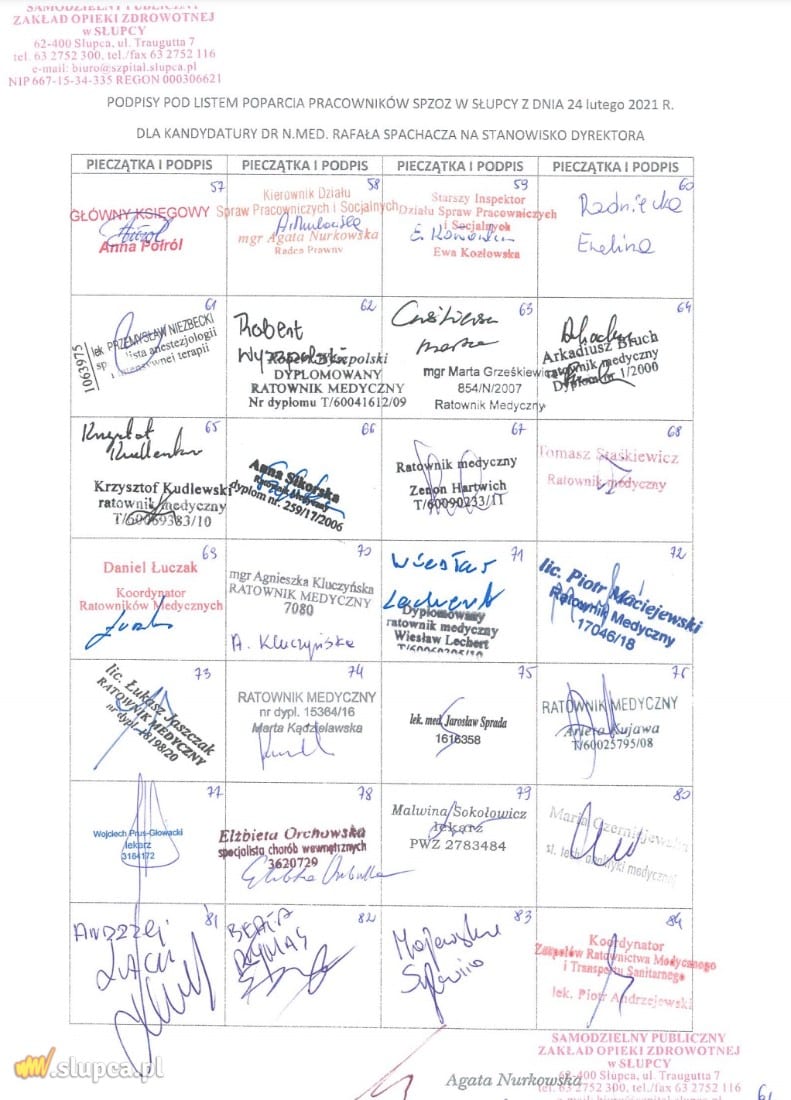 SAMODZIELNY PUBLICZNY
ZAKŁAD OPIEKI ZDROWOTNEJ
w SŁUPCY
62-400 Słupca, ul. Traugutta 7
tel. 63 2752 300, tel./fax 63 2752 116
e-mail: biuro@szpital.slupca.pl
NIP 667-15-34-335 REGON 000306621
PODPISY POD LISTEM POPARCIA PRACOWNIKÓW SPZOZ W SŁUPCY Z DNIA 24 lutego 2021 R.
DLA KANDYDATURY DR N.MED. RAFAŁA SPACHACZA NA STANOWISKO DYREKTORA
PIECZĄTKA I PODPIS PIECZĄTKA I PODPIS PIECZĄTKA I PODPIS PIECZĄTKA I PODPIS
57
GŁÓWNY KSIĘGOWY
Anna Potról
58
Kierownik Działu
Spraw Pracowniczych i Socjalnych
A. Nurkowska
mgr Agata Nurkowska
Radca Prawny
59
Starszy Inspektor
Działu Spraw Pracowniczych
i Socjalnych
E. Kozłowska
Ewa Kozłowska
60
Radniecka
Ewelina
61
lek PRZEMYSŁAW NIEZBECKI
anestezjologii
intensywnej terapii
1063975
62
Robert
DYPLOMOWANY
RATOWNIK MEDYCZNY
Nr dyplomu T/60041612/09
63
mgr Marta Grześkiewicz
854/N/2007
Ratownik Medyczny
64
Arkadiusz Bruch
ratownik medyczny
Dyplom nr 1/2000
65
Krzysztof
Kudlewski
Krzysztof Kudlewski
ratownik medyczny
T/60069383/10
66
Anna Sikorska
Ratownik Medyczny
dyplom nr. 259/17/2006
67
Ratownik medyczny
Zenon Hartwich
T/60090233/11
68
Tomasz Staśkiewicz
Ratownik medyczny
69
Daniel Łuczak
Koordynator
Ratowników Medycznych
70
mgr Agnieszka Kluczyńska
RATOWNIK MEDYCZNY
7080
A. Kluczyńska
71
Wiesław
Lechert
Dyplomowany
ratownik medyczny
Wiesław Lechert
72
lic. Piotr Maciejewski
Ratownik Medyczny
17046/18
73
lic. Łukasz Jaszczak
RATOWNIK MEDYCZNY
nr dypl. 18198/20
74
RATOWNIK MEDYCZNY
nr dypl. 15364/16
Marta Kądzielawska
75
lek. med. Jarosław Sprada
1616358
76
RATOWNIK MEDYCZNY
Arleta Kujawa
T/60025795/08
77
Wojciech Prus-Głowacki
lekarz
3164172
78
Elżbieta Orchowska
specjalista chorób wewnętrznych
3620729
79
Malwina Sokołowicz
lekarz
PWZ 2783484
80
Maria Czerniejewska
medycznej
81
ANDRZEJ
82
BEATA
83
Majewska
Sylwia
84
Koordynator
Zespołów Ratownictwa Medycznego
i Transportu Sanitarnego
lek. Piotr Andrzejewski
.slupca.pl
Agata Nurkowska
SAMODZIELNY PUBLICZNY
ZAKŁAD OPIEKI ZDROWOTNEJ
w SŁUPCY
62-400 Słupca, ul. Traugutta 7
tel. 63 2752 300, tel./fax 63 2752 116